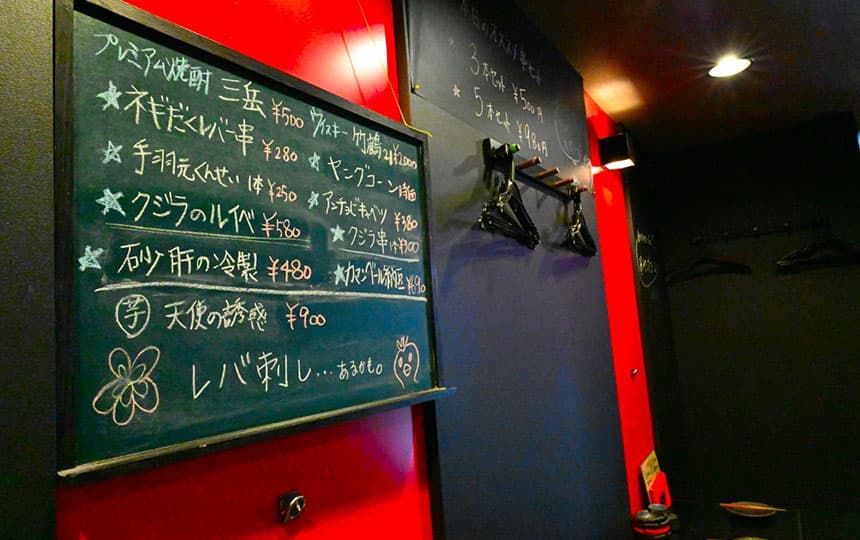 プレミアム焼酎 三岳 ¥500
★ネギだくレバー串 ¥280
★手羽元くんせい 1本 ¥250
★クジラのルイベ ¥580
★砂肝の冷製 ¥480
芋 天使の誘惑 ¥900
レバ刺し…あるかも。
ウィスキー竹鶴21 ¥2000
★ヤングコーン 時価
★アンチョビキャベツ ¥380
★クジラ串 1本¥300
本日のオススメ串セット
★ 3本セット ¥500円
★ 5本セット ¥980円